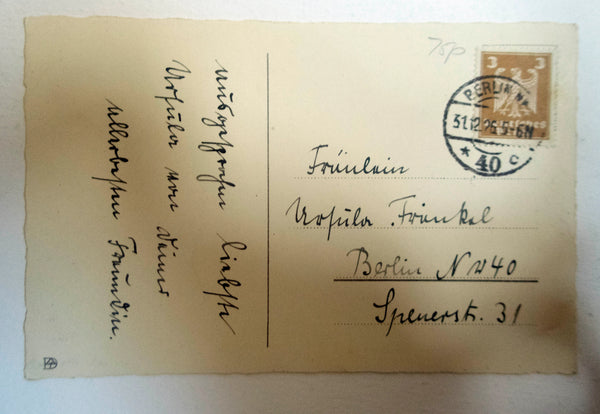 liebste
Ursula von Deiner
allerbesten Freundin.
75p
3 3
Deutsches
BERLIN NW
31.12.26.5-6N
* 40 c
Fräulein
Ursula Fränkel
Berlin NW40
Spenerstr. 31